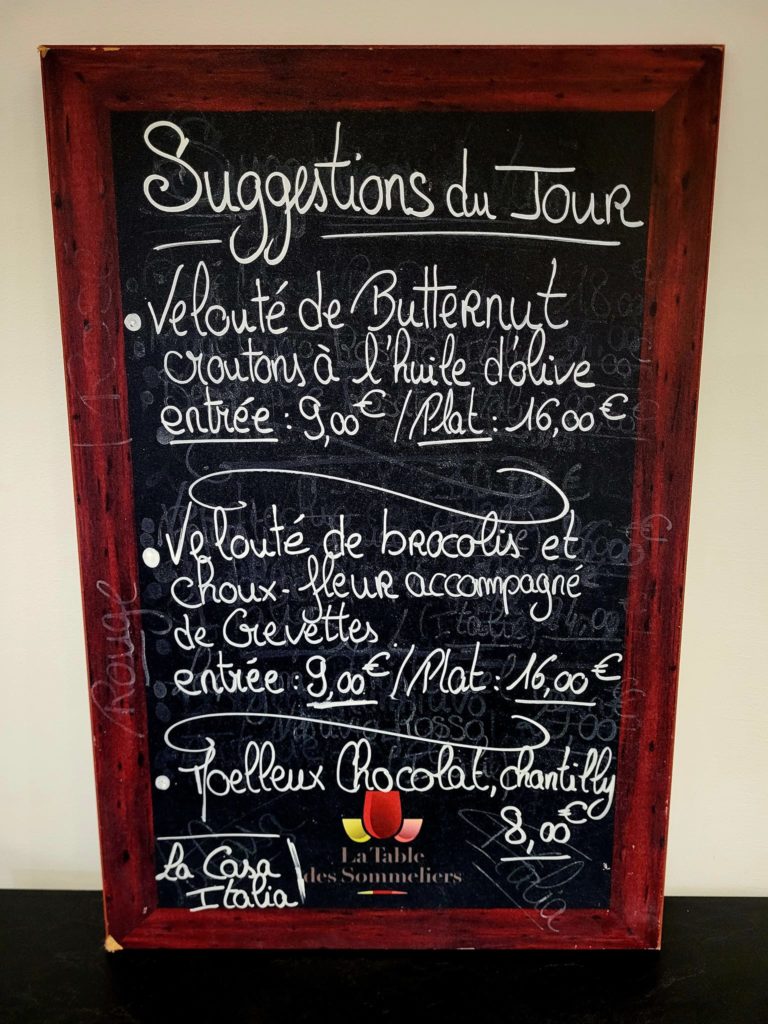 Suggestions du Jour
• Velouté de Butternut
croutons à l'huile d'olive
entrée : 9,00€ / Plat : 16,00€
• Velouté de brocolis et
choux-fleur accompagné
de Crevettes
entrée : 9,00€ / Plat : 16,00€
• Moelleux Chocolat, chantilly
8,00€
La Table
des Sommeliers
La Casa
Italia
Rouge